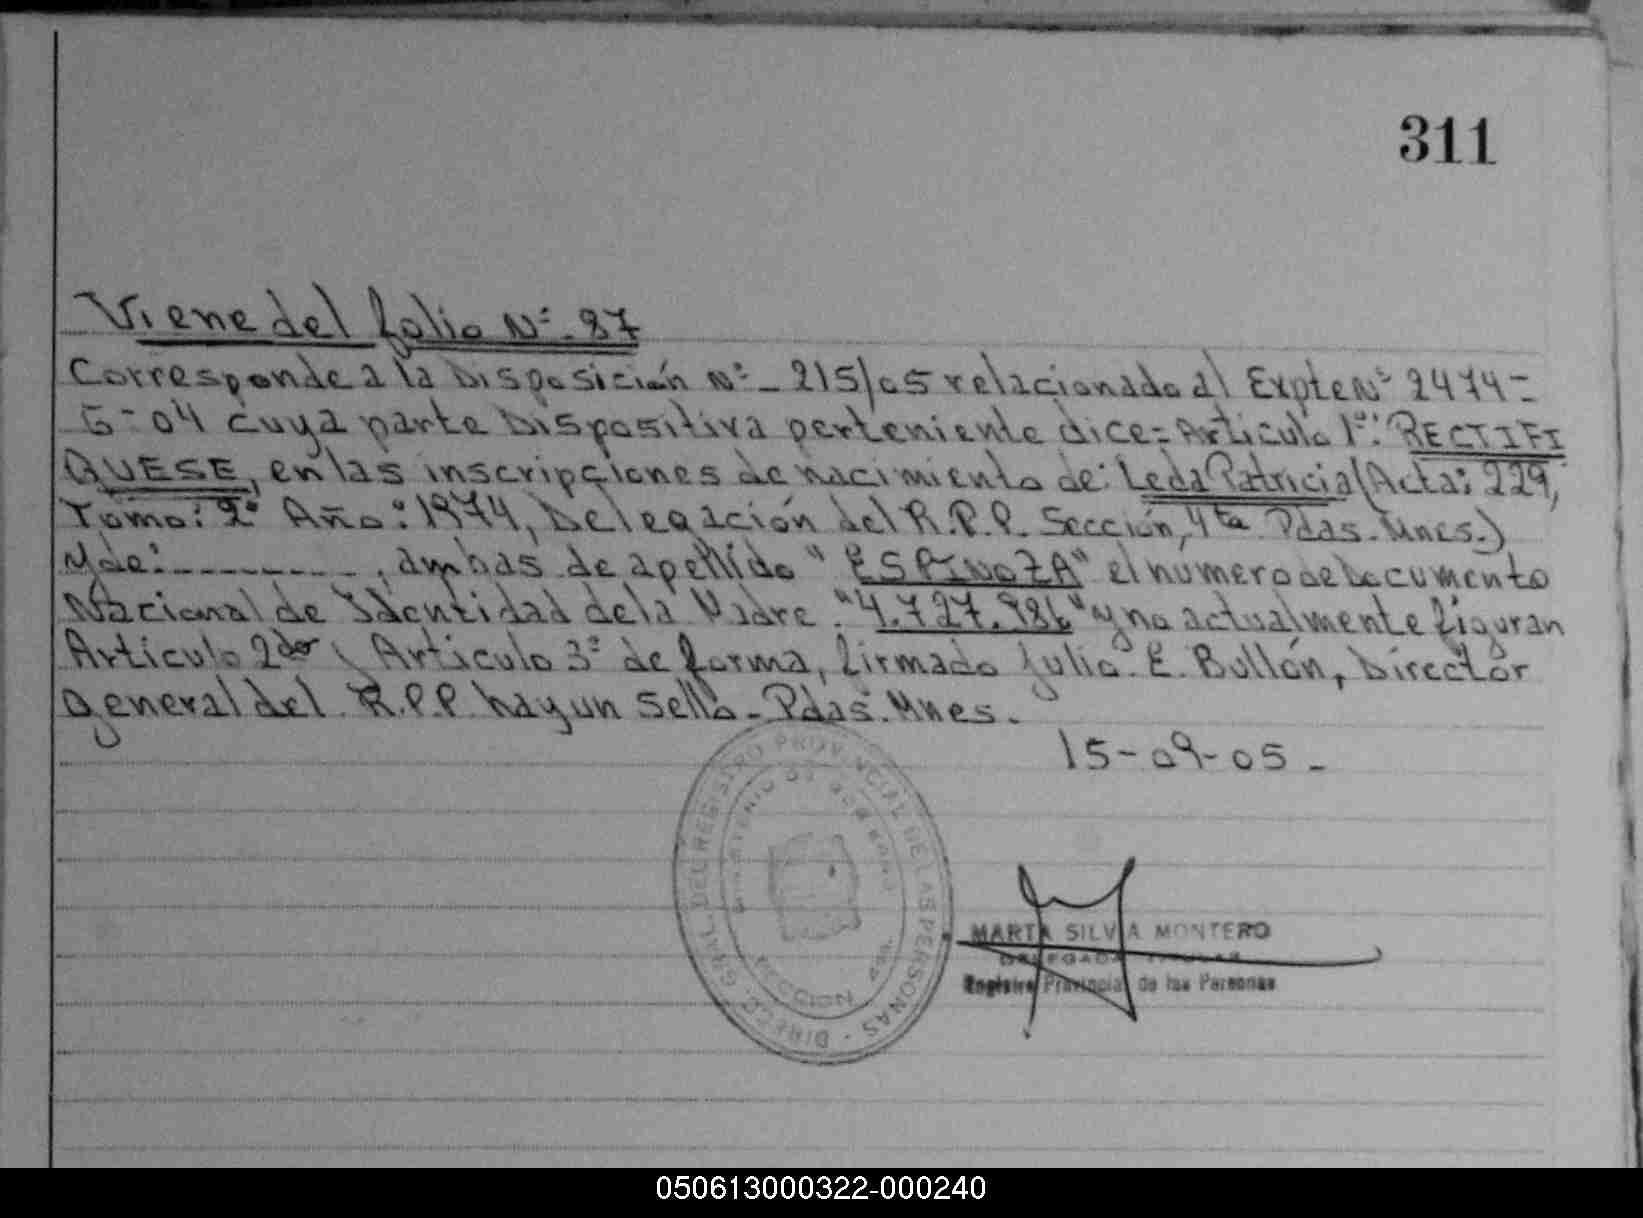 311
Viene del folio Nº- 87
Corresponde a la Disposición Nº- 215/05 relacionado al Expte Nº 2474-
G-04 cuya parte Dispositiva perteniente dice= Articulo 1º: RECTIFI
QUESE, en las inscripciones de nacimiento de: Leda Patricia (Acta: 229,
Tomo: 2º Año: 1974, Delegación del R.P.P. Sección, 4ta Pdas. Mnes.)
y de: - - - - - - - - -, ambas de apellido "ESPINOZA" el numero de Documento
Nacional de Identidad de la Madre "4.727.986" y no actualmente figuran
Articulo 2do y Articulo 3º de forma, firmado Julio E. Bullón, Director
general del R.P.P hay un sello- Pdas. Mnes.
15-09-05-
DIRECC. GRAL. DEL REGISTRO PROVINCIAL DE LAS PERSONAS -
MINISTERIO DE GOBIERNO
MARTA SILVIA MONTERO
DELEGADA TITULAR
Registro Provincial de las Personas
050613000322-000240